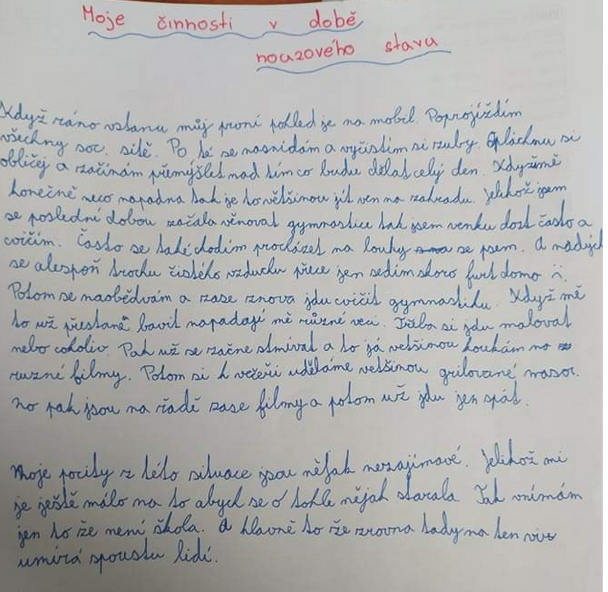 Moje činnosti v době
nouzového stavu
Když ráno vstanu můj první pohled je na mobil. Poprojíždím
všechny soc. sítě. Po té se nasnídám a vyčistím si zuby. Opláchnu si
obličej a začínám přemýšlet nad tím co budu dělat celý den. Když mě
konečně neco napadna tak je to většinou jít ven na zahradu. Jelikož jsem
se poslední dobou začala věnovat gymnastice tak jsem venku dost často a
cvičím. Často se také chodím procházet na louky se psem. A nadých
se alespoň trochu čistého vzduchu přece jen sedím skoro furt doma
Potom se naobědvám a zase znova jdu cvičit gymnastiku. Když mě
to už přestane bavit napadají mě různé veci. Třeba si jdu malovat
nebo cokoliv. Pak už se začne stmívat a to já vetšinou koukám na
ruzné filmy. Potom si k večeři uděláme vetšinou grilované maso.
no pak jsou na řadě zase filmy a potom už jdu jen spát.
Moje pocity z této situace jsou nějak nezajímavé. Jelikož mi
je ještě málo na to abych se o tohle nějak starala. Tak vnímám
jen to že není škola. A hlavně to že zrovna tady na ten virus
umírá spoustu lidí.